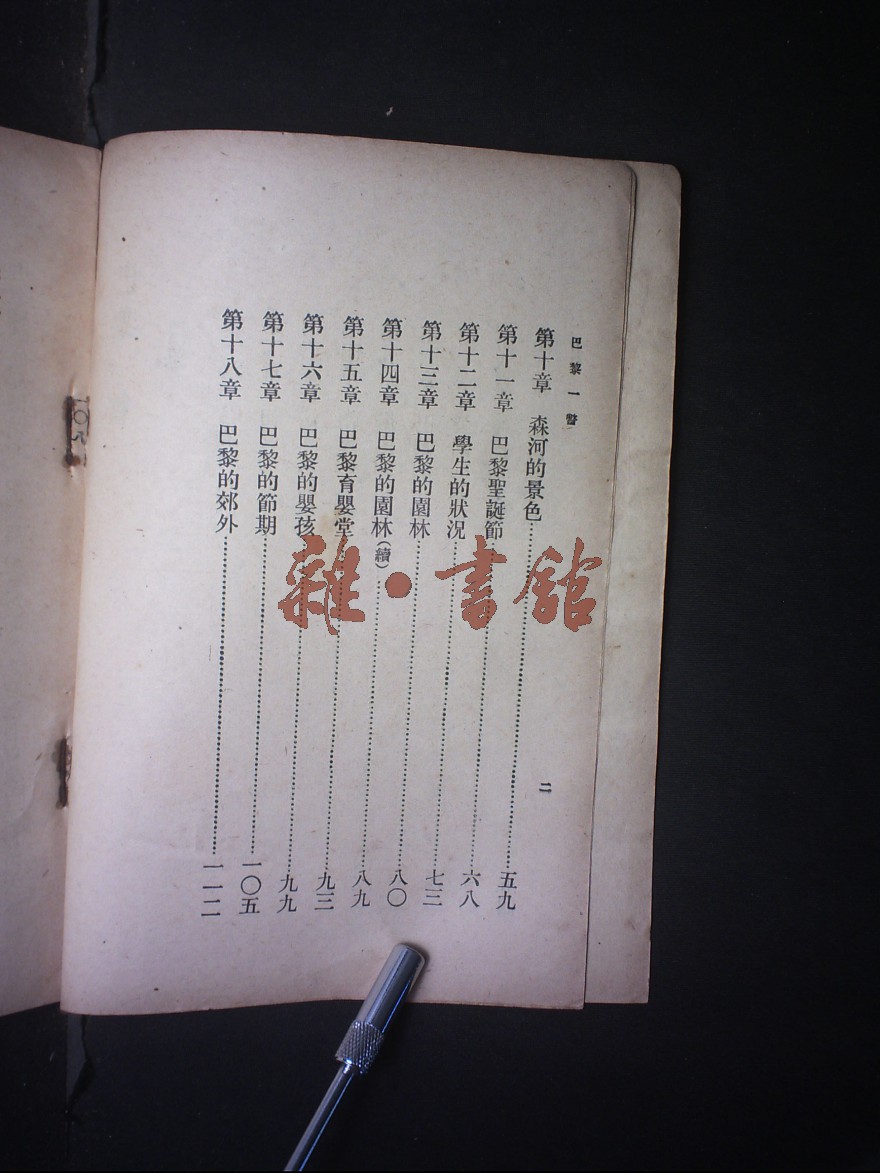 巴黎一瞥
二
第十章 森河的景色……五九
第十一章 巴黎聖誕節……六八
第十二章 學生的狀況……七三
第十三章 巴黎的園林……八〇
第十四章 巴黎的園林(續)……八九
第十五章 巴黎育嬰堂……九三
第十六章 巴黎的嬰孩……九九
第十七章 巴黎的節期……一〇五
第十八章 巴黎的郊外……一一二
雜·書館